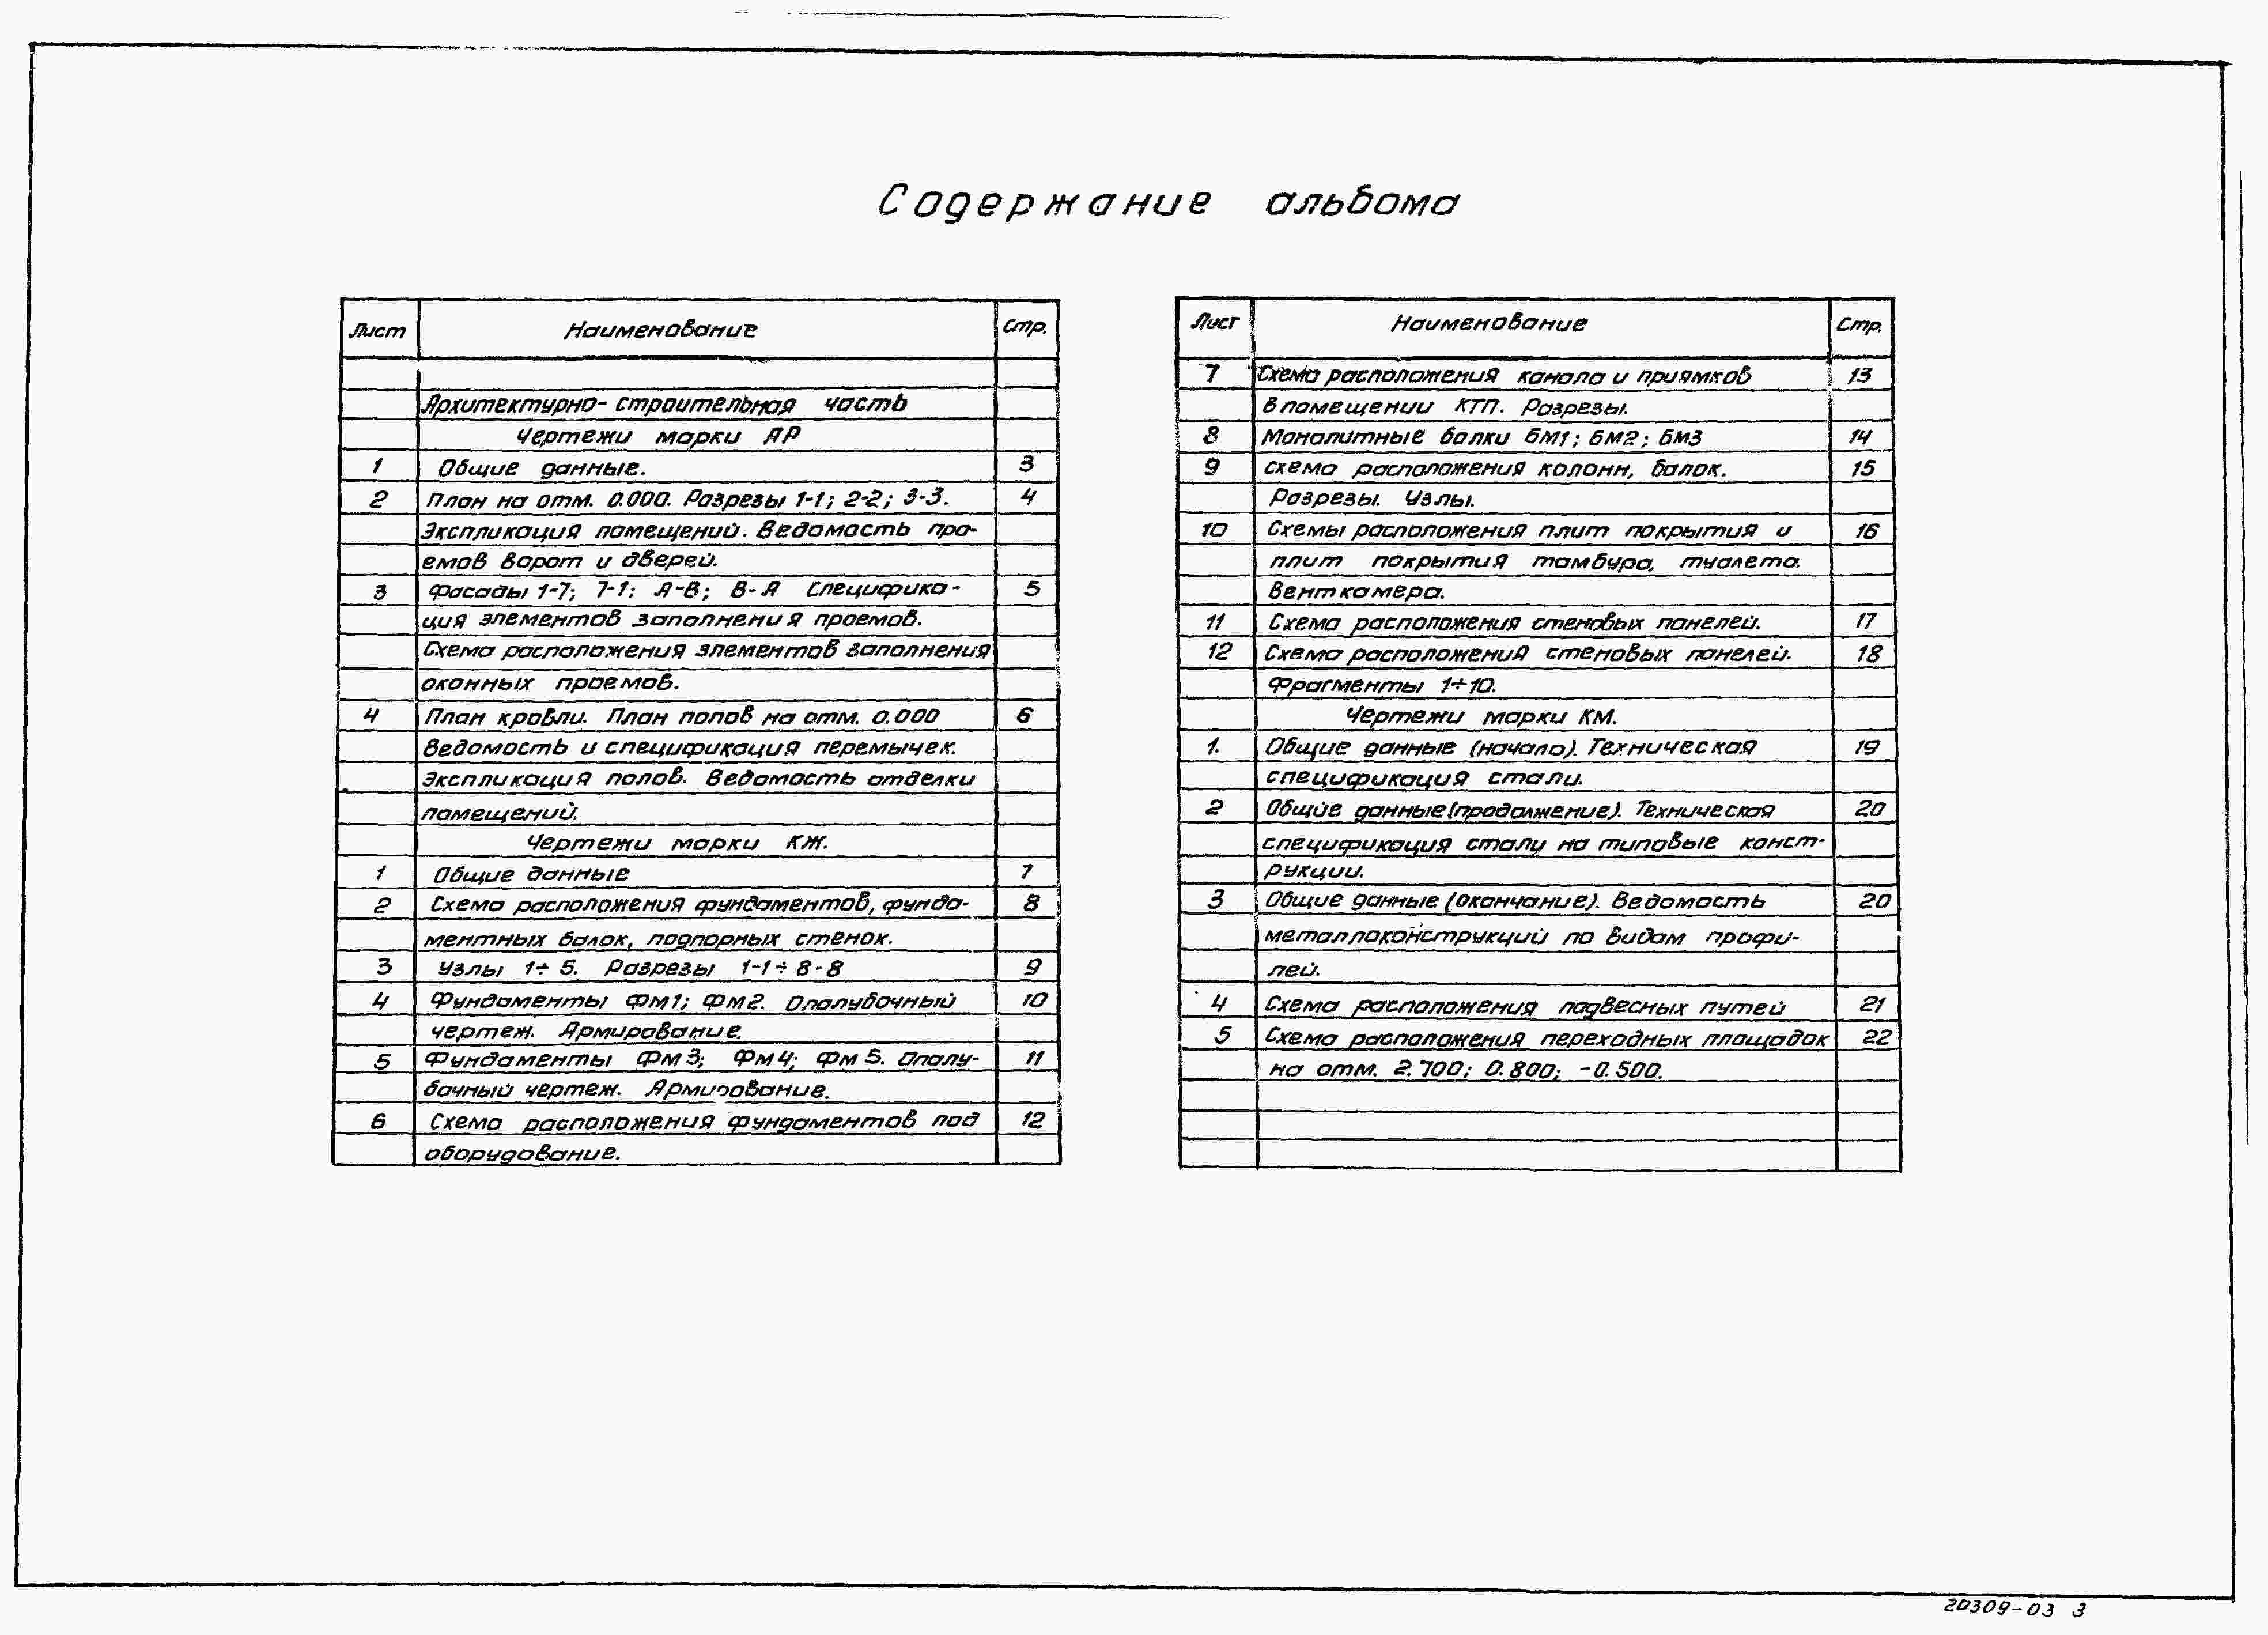 Содержание альбома
Лист Наименование Стр.
Архитектурно-строительная часть
Чертежи марки АР
1 Общие данные. 3
2 План на отм. 0.000. Разрезы 1-1; 2-2; 3-3. 4
Экспликация помещений. Ведомость про-
емов ворот и дверей.
3 Фасады 1-7; 7-1; А-В; В-А Специфика- 5
ция элементов заполнения проемов.
Схема расположения элементов заполнения
оконных проемов.
4 План кровли. План полов на отм. 0.000 6
Ведомость и спецификация перемычек.
Экспликация полов. Ведомость отделки
помещений.
Чертежи марки КЖ.
1 Общие данные 7
2 Схема расположения фундаментов, фунда- 8
ментных балок, подпорных стенок.
3 Узлы 1÷5. Разрезы 1-1÷8-8 9
4 Фундаменты ФМ1; ФМ2. Опалубочный 10
чертеж. Армирование.
5 Фундаменты ФМ3; ФМ4; ФМ5. Опалу- 11
бочный чертеж. Армирование.
6 Схема расположения фундаментов под 12
оборудование.
Лист Наименование Стр.
7 Схема расположения канала и приямков 13
в помещении КТП. Разрезы.
8 Монолитные балки БМ1; БМ2; БМ3 14
9 Схема расположения колонн, балок. 15
Разрезы. Узлы.
10 Схемы расположения плит покрытия и 16
плит покрытия тамбура, туалета.
Венткамера.
11 Схема расположения стеновых панелей. 17
12 Схема расположения стеновых панелей. 18
Фрагменты 1÷10.
Чертежи марки КМ.
1. Общие данные (начало). Техническая 19
спецификация стали.
2 Общие данные (продолжение). Техническая 20
спецификация сталу на типовые конст-
рукции.
3 Общие данные (окончание). Ведомость 20
металлоконструкций по видам профи-
лей.
4 Схема расположения подвесных путей 21
5 Схема расположения переходных площадок 22
на отм. 2.700; 0.800; -0.500.
20309-03 3